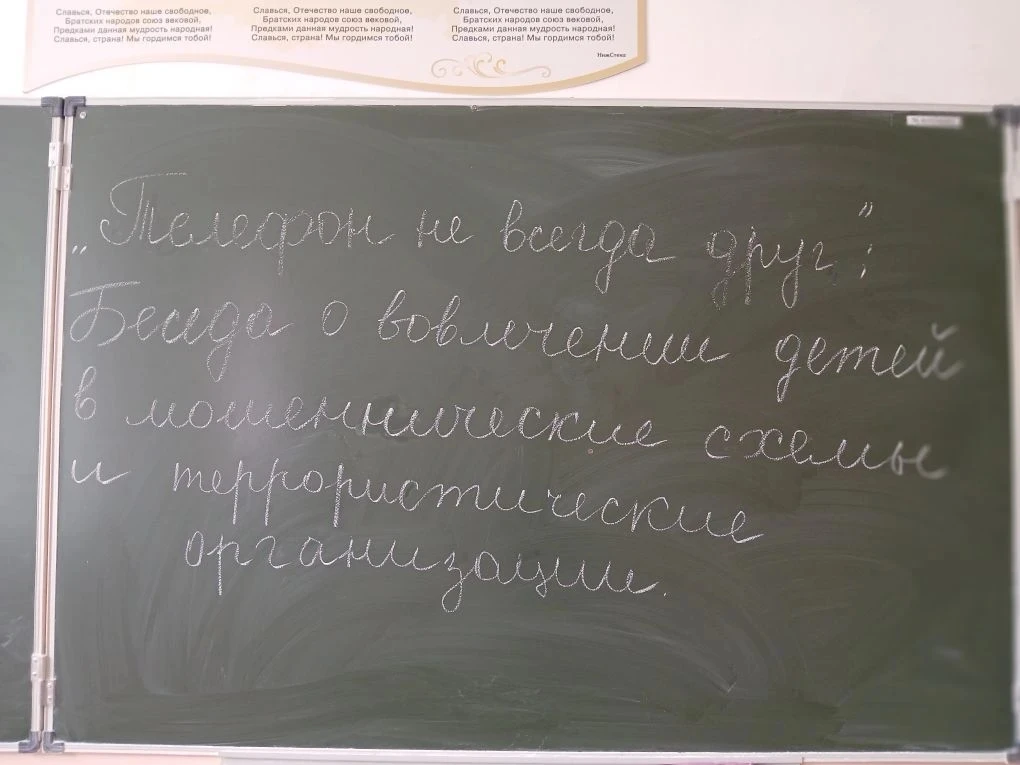 Славься, Отечество наше свободное,
Братских народов союз вековой,
Предками данная мудрость народная!
Славься, страна! Мы гордимся тобой!
Славься, Отечество наше свободное,
Братских народов союз вековой,
Предками данная мудрость народная!
Славься, страна! Мы гордимся тобой!
Славься, Отечество наше свободное,
Братских народов союз вековой,
Предками данная мудрость народная!
Славься, страна! Мы гордимся тобой!
НижСтенд
„Телефон не всегда друг”:
Беседа о вовлечении детей
в мошеннические схемы
и террористические
организации.